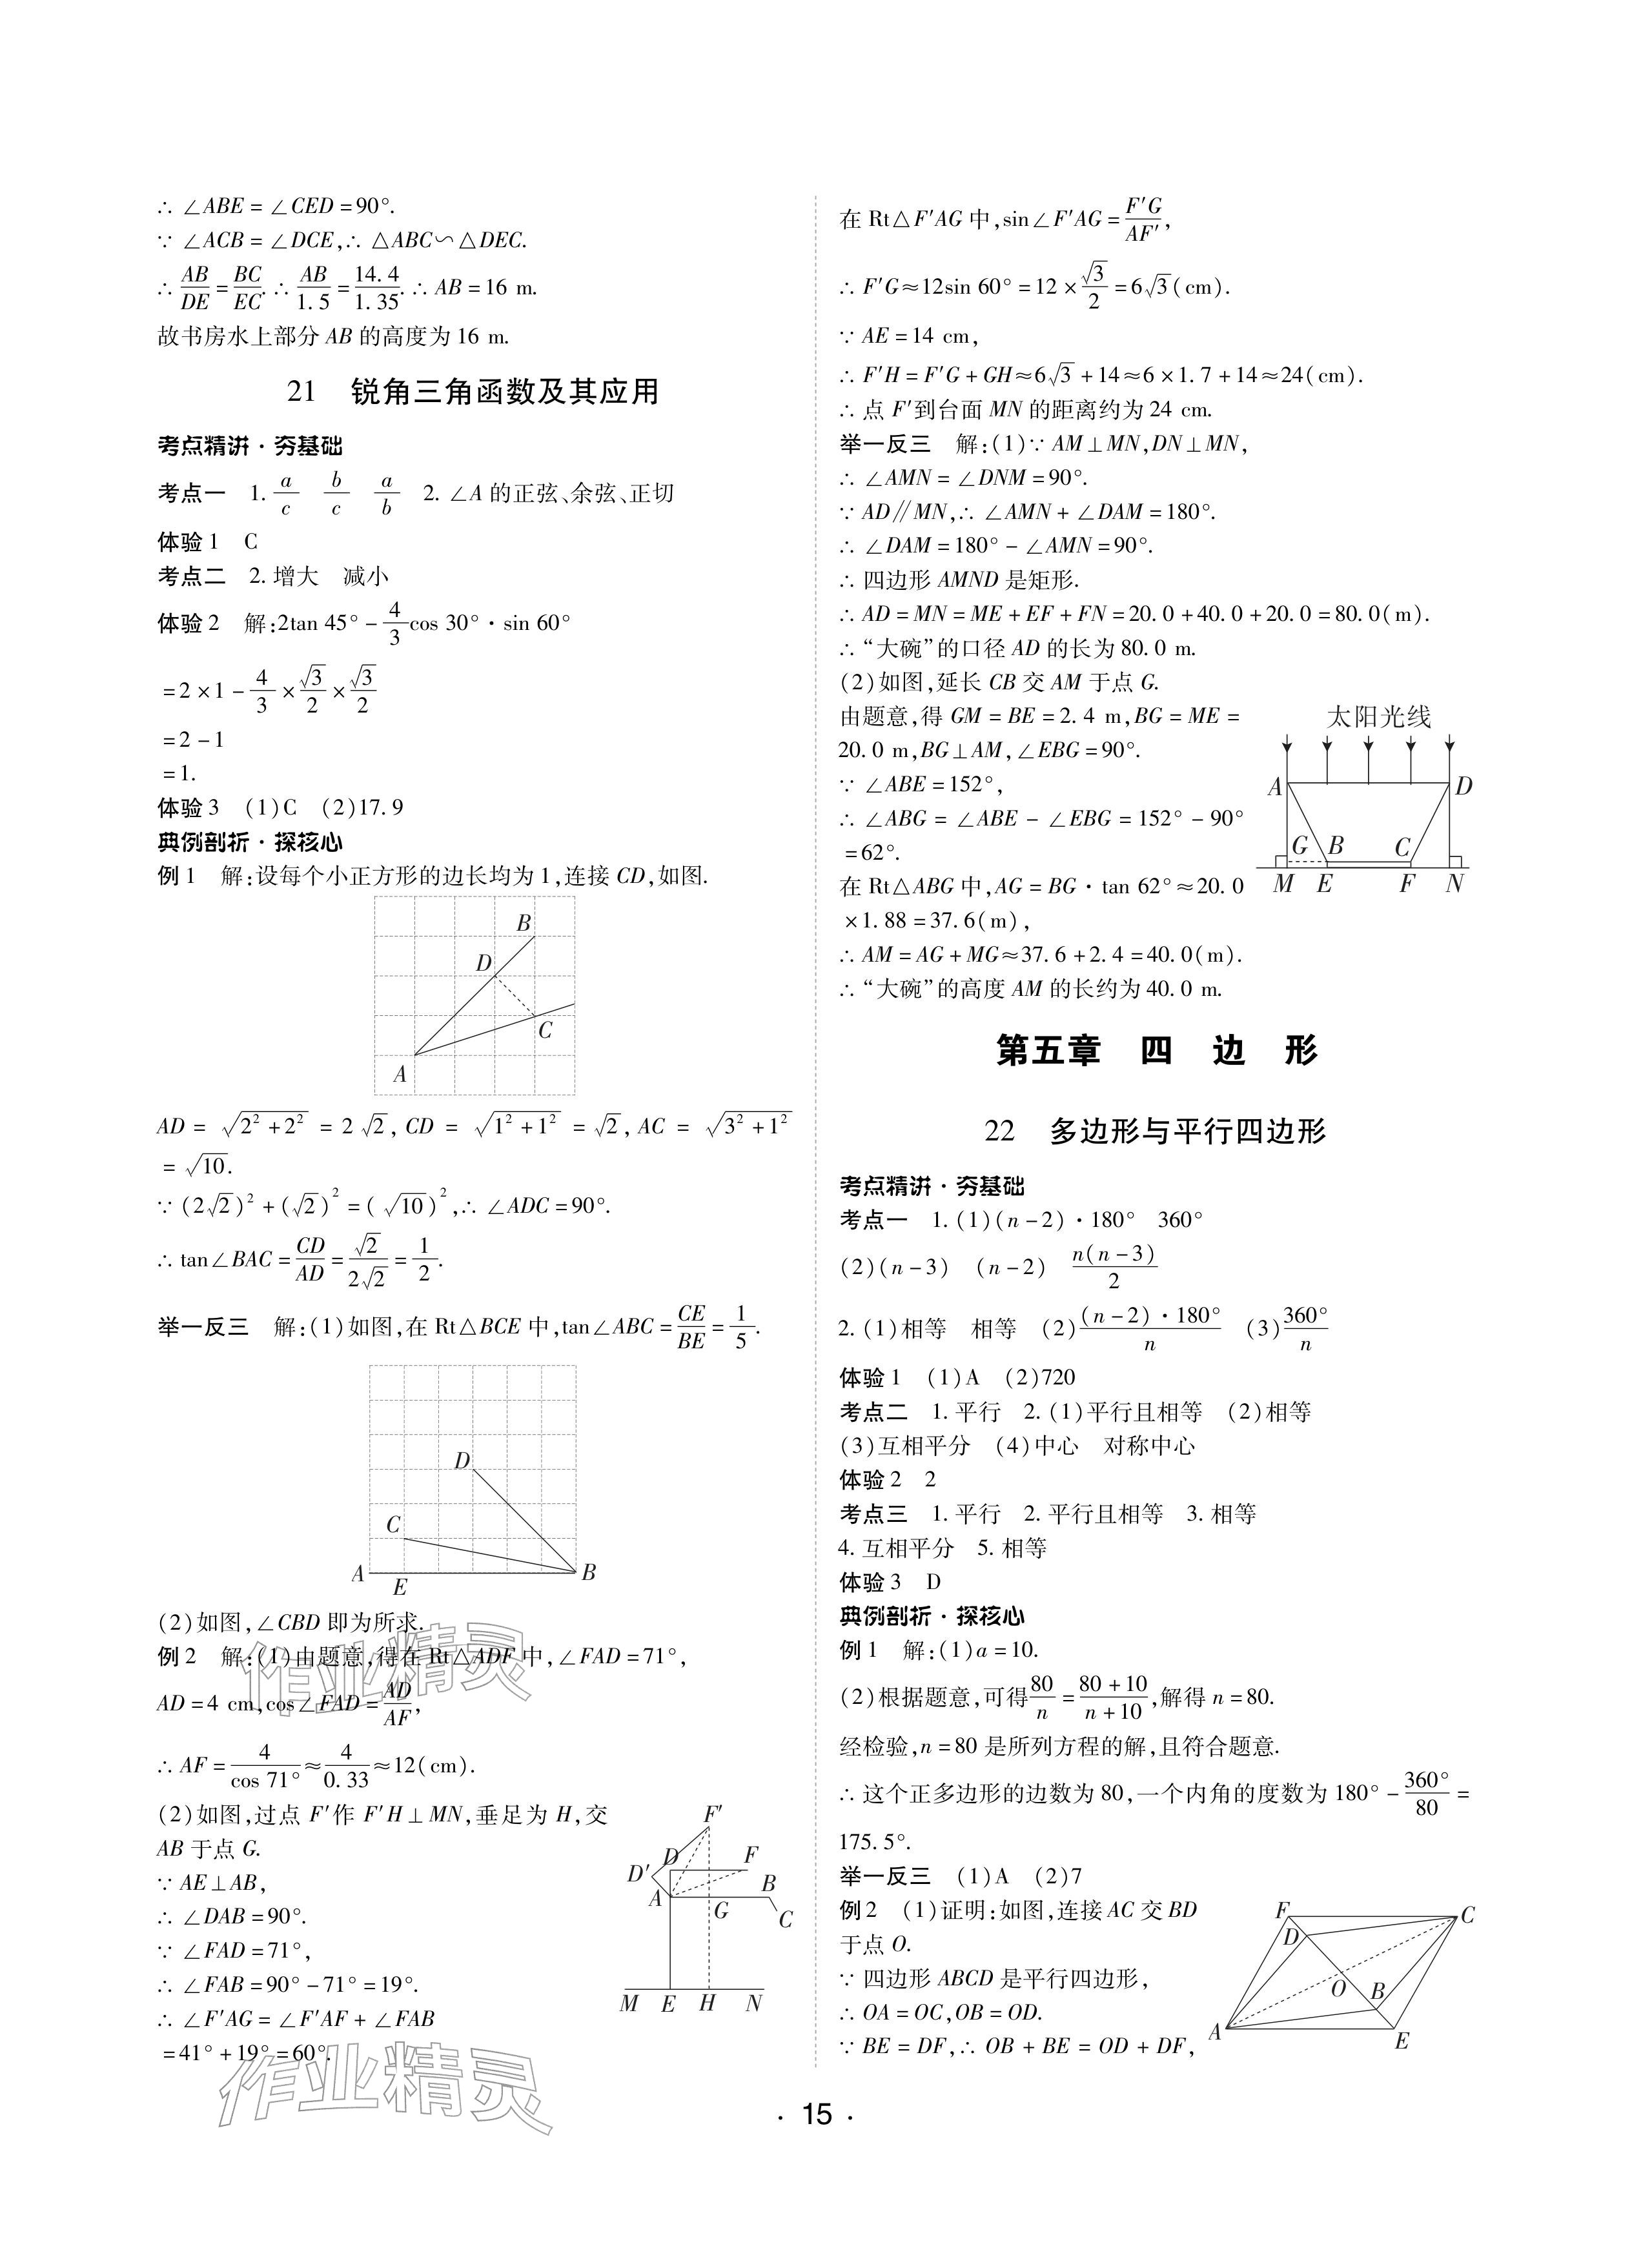 ∴ ∠ABE = ∠CED = 90°.
∵ ∠ACB = ∠DCE,∴ △ABC∽△DEC.
∴ AB/DE = BC/EC. ∴ AB/1.5 = 14.4/1.35. ∴ AB = 16 m.
故书房水上部分 AB 的高度为 16 m.
21 锐角三角函数及其应用
考点精讲·夯基础
考点一 1. a/c b/c a/b 2. ∠A 的正弦、余弦、正切
体验1 C
考点二 2. 增大 减小
体验2 解:2tan 45° - 4/3 cos 30°·sin 60°
= 2 × 1 - 4/3 × √3/2 × √3/2
= 2 - 1
= 1.
体验3 (1)C (2)17.9
典例剖析·探核心
例1 解:设每个小正方形的边长均为1,连接 CD,如图.
B
D
C
A
AD = √(2² + 2²) = 2√2, CD = √(1² + 1²) = √2, AC = √(3² + 1²)
= √10.
∵ (2√2)² + (√2)² = (√10)²,∴ ∠ADC = 90°.
∴ tan∠BAC = CD/AD = √2/2√2 = 1/2.
举一反三 解:(1)如图,在 Rt△BCE 中,tan∠ABC = CE/BE = 1/5.
D
C
A
E
B
(2)如图,∠CBD 即为所求.
例2 解:(1)由题意,得在 Rt△ADF 中,∠FAD = 71°,
AD = 4 cm,cos∠FAD = AD/AF,
∴ AF = 4/cos 71° ≈ 4/0.33 ≈ 12(cm).
(2)如图,过点 F′作 F′H⊥MN,垂足为 H,交
AB 于点 G.
∵ AE⊥AB,
∴ ∠DAB = 90°.
∵ ∠FAD = 71°,
∴ ∠FAB = 90° - 71° = 19°.
∴ ∠F′AG = ∠F′AF + ∠FAB
= 41° + 19° = 60°.
F′
D
F
D′
A
B
G
C
M E H N
作业精灵
作业精灵
在 Rt△F′AG 中,sin∠F′AG = F′G/AF′,
∴ F′G≈12sin 60° = 12 × √3/2 = 6√3(cm).
∵ AE = 14 cm,
∴ F′H = F′G + GH≈6√3 + 14≈6 × 1.7 + 14≈24(cm).
∴ 点 F′到台面 MN 的距离约为 24 cm.
举一反三 解:(1)∵ AM⊥MN,DN⊥MN,
∴ ∠AMN = ∠DNM = 90°.
∵ AD∥MN,∴ ∠AMN + ∠DAM = 180°.
∴ ∠DAM = 180° - ∠AMN = 90°.
∴ 四边形 AMND 是矩形.
∴ AD = MN = ME + EF + FN = 20.0 + 40.0 + 20.0 = 80.0(m).
∴ “大碗”的口径 AD 的长为 80.0 m.
(2)如图,延长 CB 交 AM 于点 G.
由题意,得 GM = BE = 2.4 m,BG = ME =
20.0 m,BG⊥AM,∠EBG = 90°.
∵ ∠ABE = 152°,
∴ ∠ABG = ∠ABE - ∠EBG = 152° - 90°
= 62°.
在 Rt△ABG 中,AG = BG·tan 62°≈20.0
× 1.88 = 37.6(m),
∴ AM = AG + MG≈37.6 + 2.4 = 40.0(m).
∴ “大碗”的高度 AM 的长约为 40.0 m.
太阳光线
A D
G B C
M E F N
第五章 四 边 形
22 多边形与平行四边形
考点精讲·夯基础
考点一 1. (1)(n - 2)·180° 360°
(2)(n - 3) (n - 2) n(n - 3)/2
2. (1)相等 相等 (2)(n - 2)·180°/n (3)360°/n
体验1 (1)A (2)720
考点二 1. 平行 2. (1)平行且相等 (2)相等
(3)互相平分 (4)中心 对称中心
体验2 2
考点三 1. 平行 2. 平行且相等 3. 相等
4. 互相平分 5. 相等
体验3 D
典例剖析·探核心
例1 解:(1)a = 10.
(2)根据题意,可得 80/n = (80 + 10)/(n + 10),解得 n = 80.
经检验,n = 80 是所列方程的解,且符合题意.
∴ 这个正多边形的边数为 80,一个内角的度数为 180° - 360°/80 =
175.5°.
举一反三 (1)A (2)7
例2 (1)证明:如图,连接 AC 交 BD
于点 O.
∵ 四边形 ABCD 是平行四边形,
∴ OA = OC,OB = OD.
∵ BE = DF,∴ OB + BE = OD + DF,
F C
D
O B
A E
· 15 ·